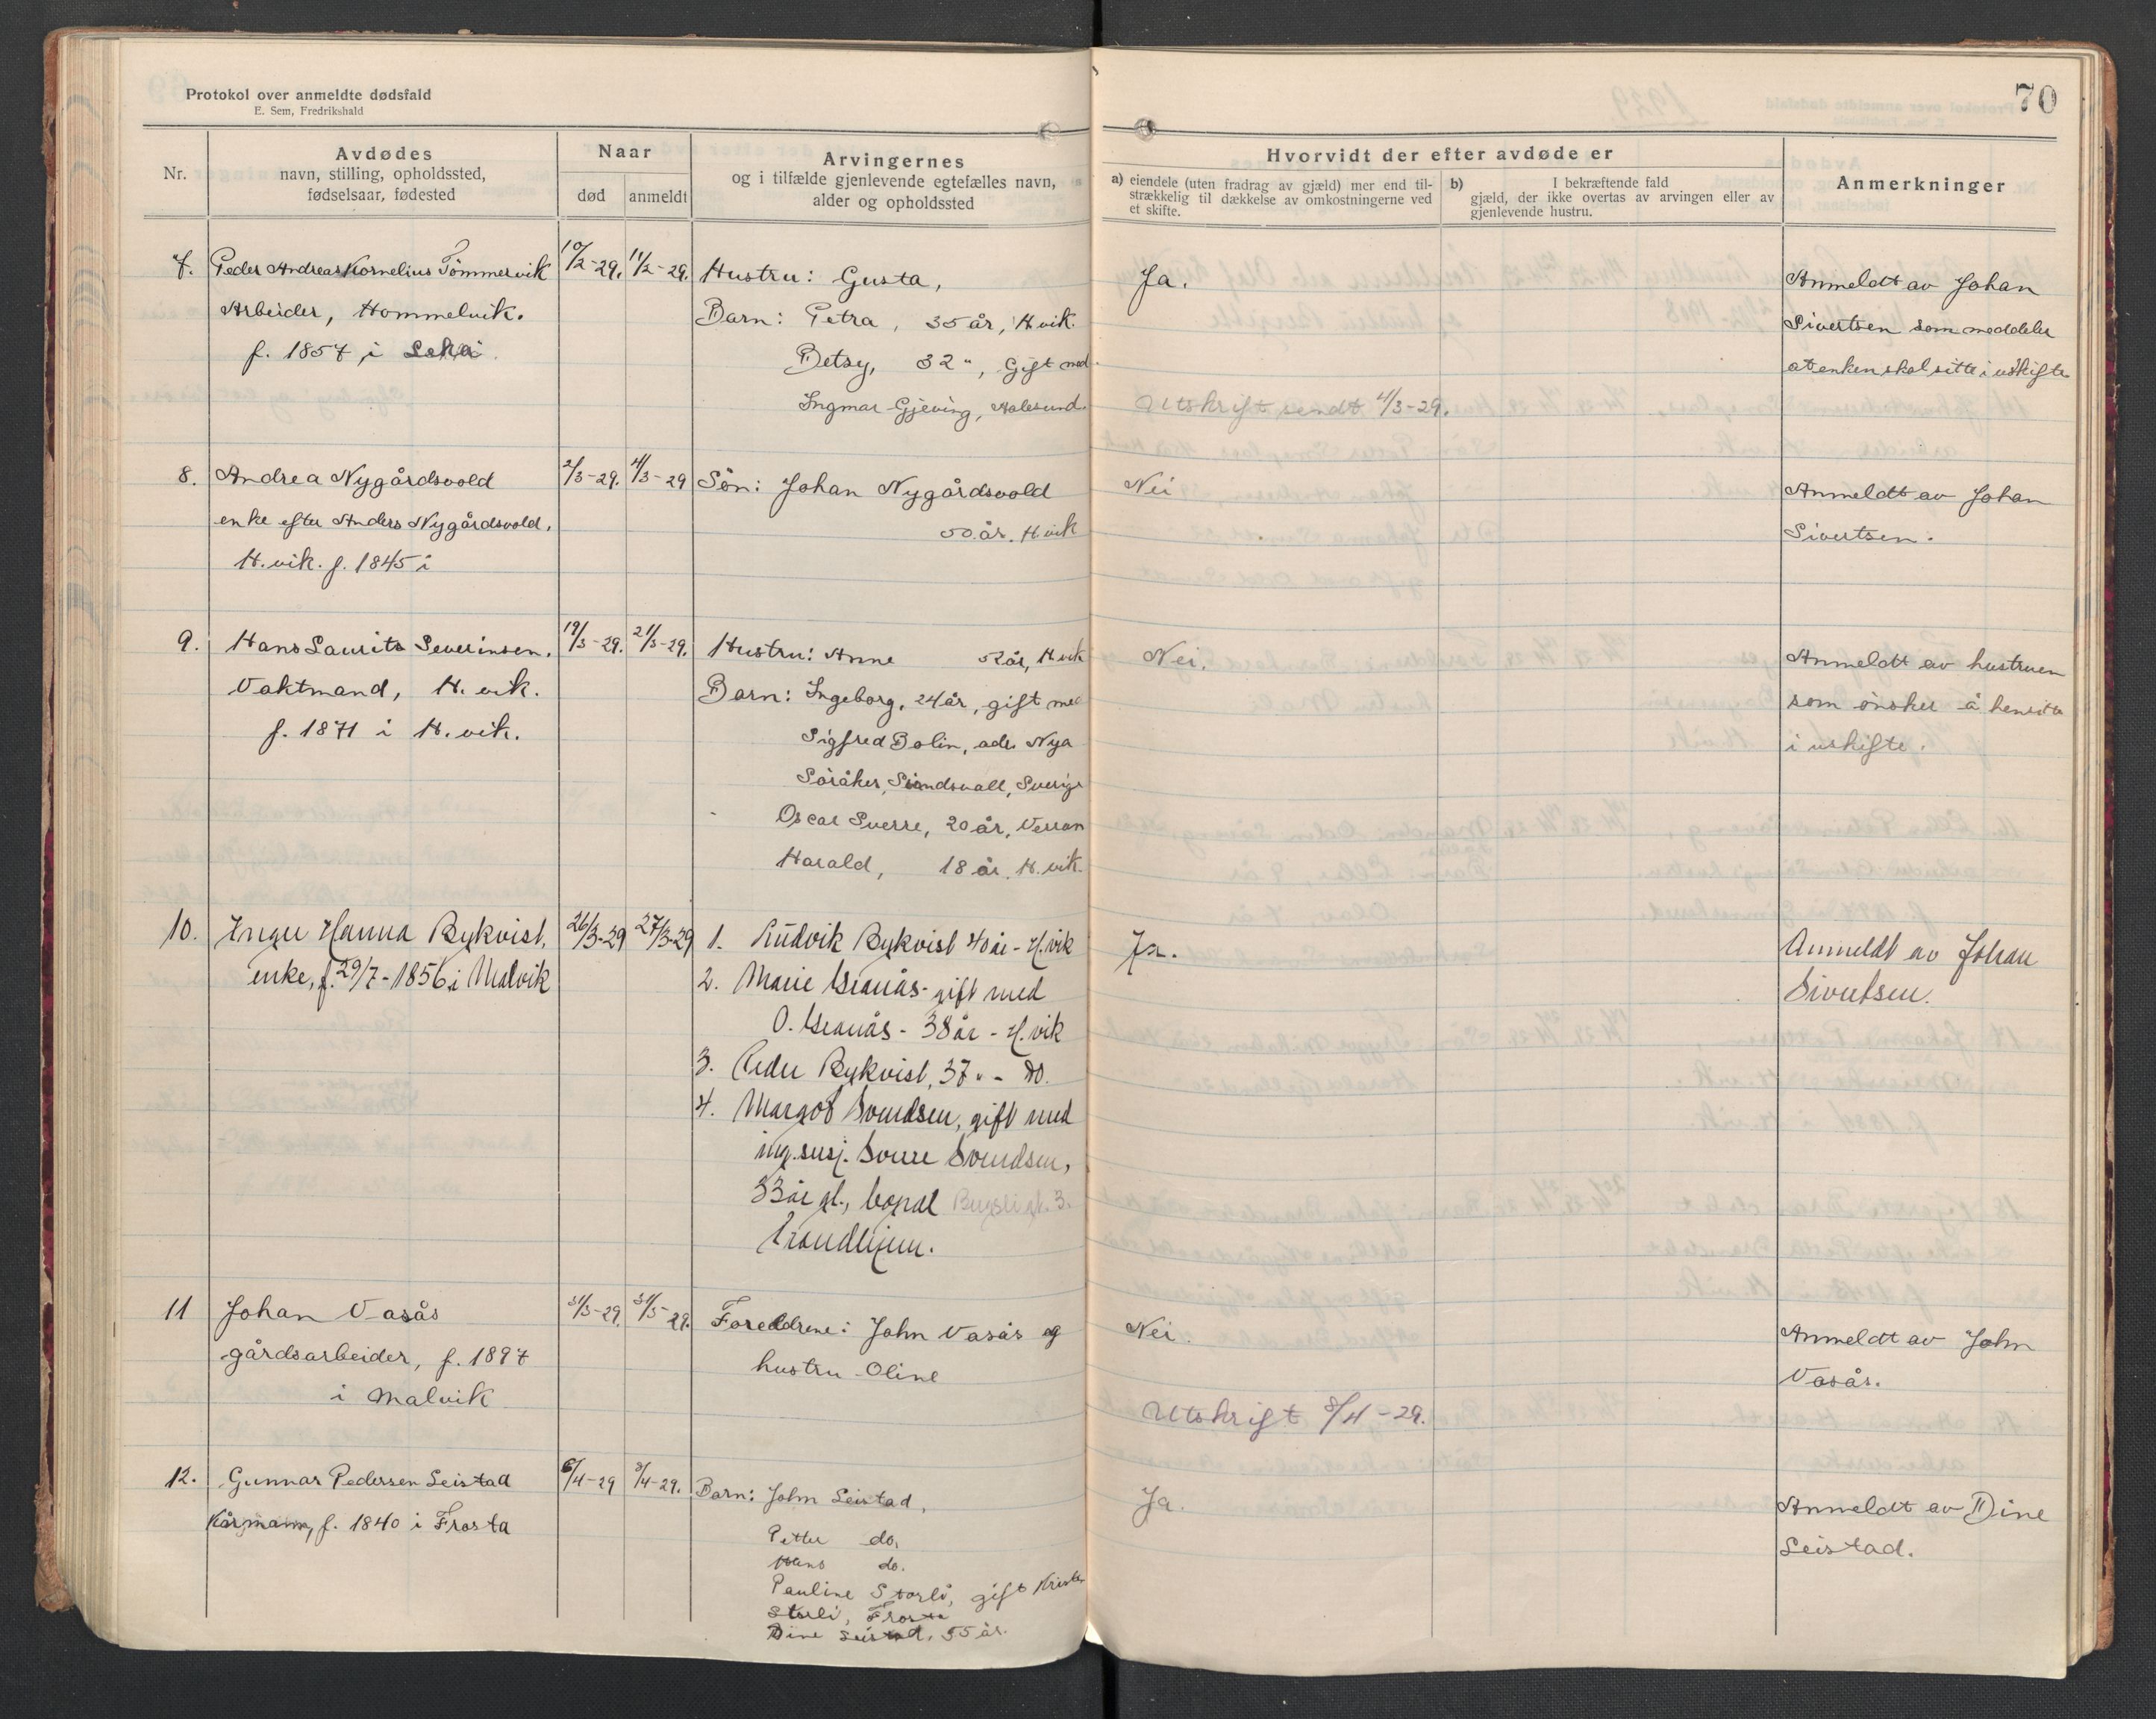 Protokol over anmeldte dødsfald
E. Sem, Fredrikshald
70
Nr.
Avdødes
navn, stilling, opholdssted,
fødselsaar, fødested
Naar
død
anmeldt
Arvingernes
og i tilfælde gjenlevende egtefælles navn,
alder og opholdssted
Hvorvidt der efter avdøde er
a) eiendele (uten fradrag av gjæld) mer end til-
strækkelig til dækkelse av omkostningerne ved
et skifte.
b) I bekræftende fald
gjæld, der ikke overtas av arvingen eller av
gjenlevende hustru.
Anmerkninger
7. Peder Andreas Kornelius Tömmervik
Arbeider, Hommelvik.
f. 1857 i Leka
10/2-29. 11/2-29.
Hustru: Gusta,
Barn: Petra, 35 år, H.vik.
Betsy, 32 ", Gift med
Ingmar Gjeving, Aalesund.
Ja.
Utskrift sendt 4/3-29.
Anmeldt av Johan
Sivertsen som meddeler
at enken skal sitte i uskifte
8. Andrea Nygårdsvold
enke efter Anders Nygårdsvold,
H.vik. f. 1845 i
2/3-29. 4/3-29
Sön: Johan Nygårdsvold
50 år. H.vik
Nei
Anmeldt av Johan
Sivertsen.
9. Hans Laurits Severinsen.
Vaktmand, H.vik.
f. 1871 i H.vik.
19/3-29. 21/3-29.
Hustru: Anne 52 år, H.vik
Barn: Ingeborg, 24 år, gift med
Sigfred Bolin, adr. Nya
Söråker, Sundsvall, Sverige
Oscar Sverre, 20 år, Verran
Harald, 18 år, H.vik.
Nei.
Anmeldt av hustruen
som önsker å hensitte
i uskifte.
10. Inger Hanna Rykvist,
enke, f. 29/7-1856 i Malvik
26/3-29 27/3-29
1. Ludvik Rykvist 40 år - H.vik
2. Marie Granås - gift med
O. Granås - 38 år - H.vik
3. Peder Rykvist, 37 " - do.
4. Margot Svendsen, gift med
Sverre Svendsen,
33 år gl., bopæl 3.
Trondhjem.
Ja.
Anmeldt av Johan
Sivertsen.
11 Johan Vasås
gårdsarbeider, f. 1897
i Malvik
31/3-29. 31/3-29.
Foreldrene: John Vasås og
hustru Oline
Nei.
Utskrift 8/4-29.
Anmeldt av John
Vasås.
12. Gunnar Pedersen Leistad
Kårmann, f. 1840 i Frosta
6/4-29 8/4-29.
Barn: John Leistad,
Petter do.
Hans do.
Pauline Storli, gift
Storli, Frosta
Dine Leistad, 55 år.
Ja.
Anmeldt av Dine
Leistad.